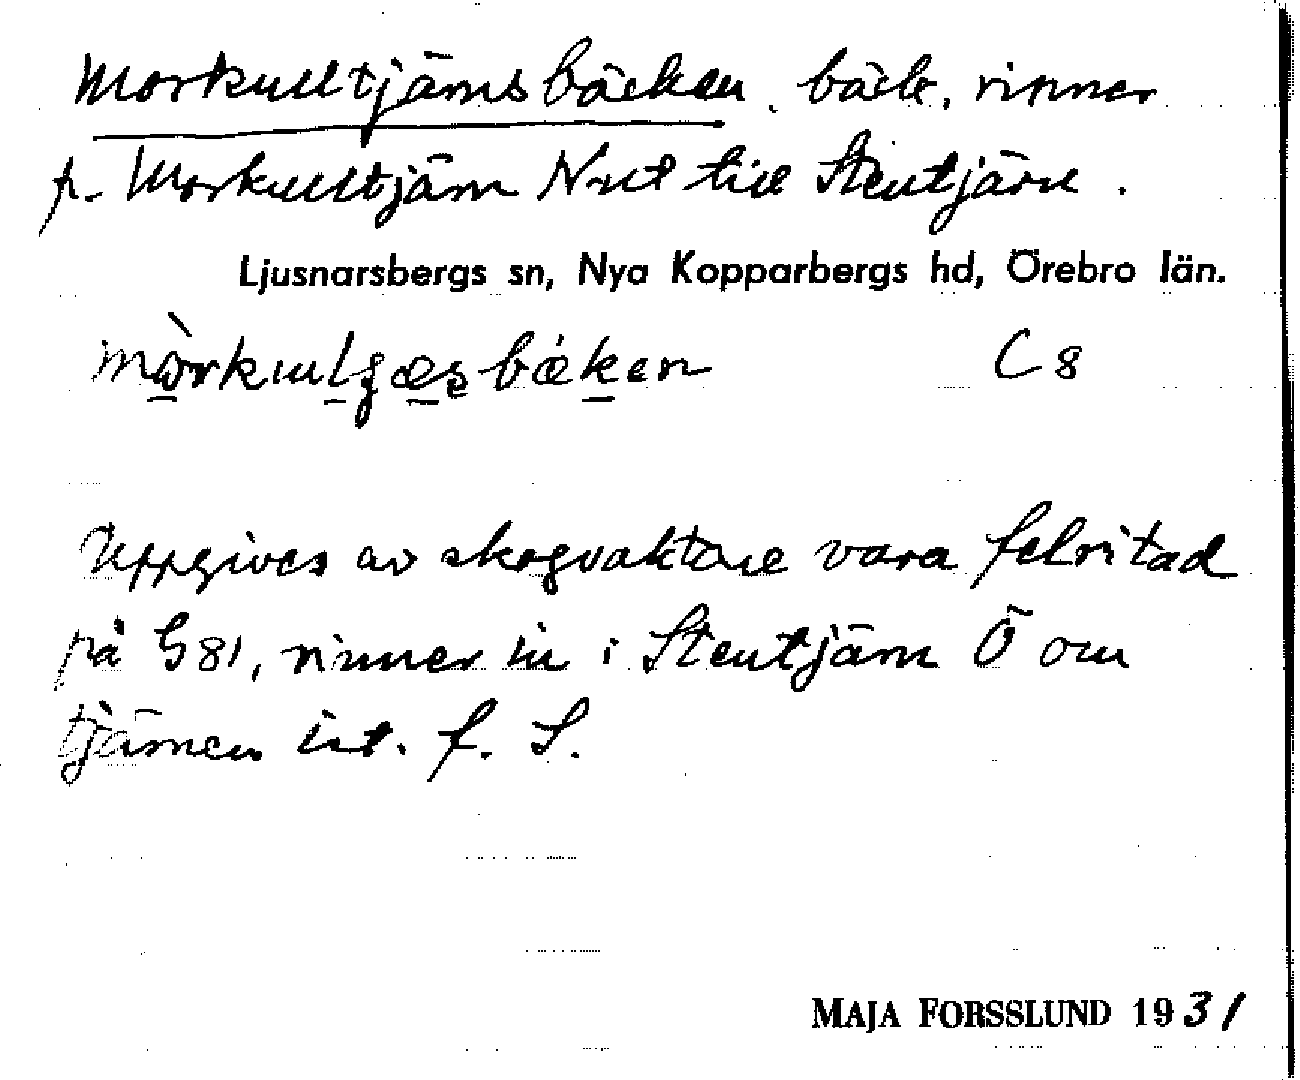 Morkulltjärnsbäcken, bäck, rinner
fr. Morkulltjärn N ut till Stentjärn.
Ljusnarsbergs sn, Nya Kopparbergs hd, Örebro län.
C 8
Uppgives av skogvaktare vara felritad
på G 81, rinner in i Stentjärn Ö om
tjärnen ist. f. S.
MAJA FORSSLUND 1931